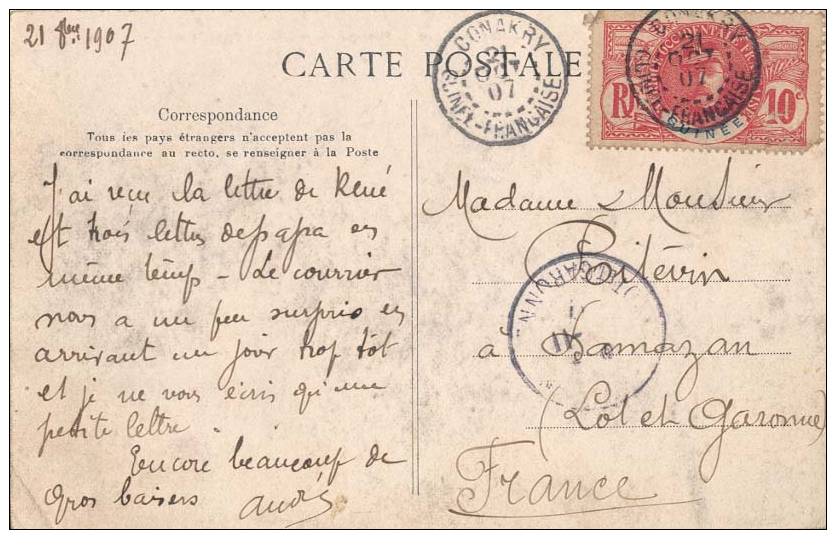 21 8bre 1907
CARTE POSTALE
CONAKRY
21
OCT
07
GUINÉE-FRANÇAISE
RF
10c
GUINÉE
CONAKRY
21
07
FRANÇAISE
Correspondance
Tous les pays étrangers n'acceptent pas la
correspondance au recto, se renseigner à la Poste
J'ai reçu la lettre de René
et trois lettres de papa en
même temps - Le courrier
nous a un peu surpris en
arrivant un jour trop tôt
et je ne vous écris qu'une
petite lettre.
Encore beaucoup de
gros baisers André
Madame & Monsieur
Poitevin
à Samazan
(Lot et Garonne)
France
LOT-ET-GARONNE